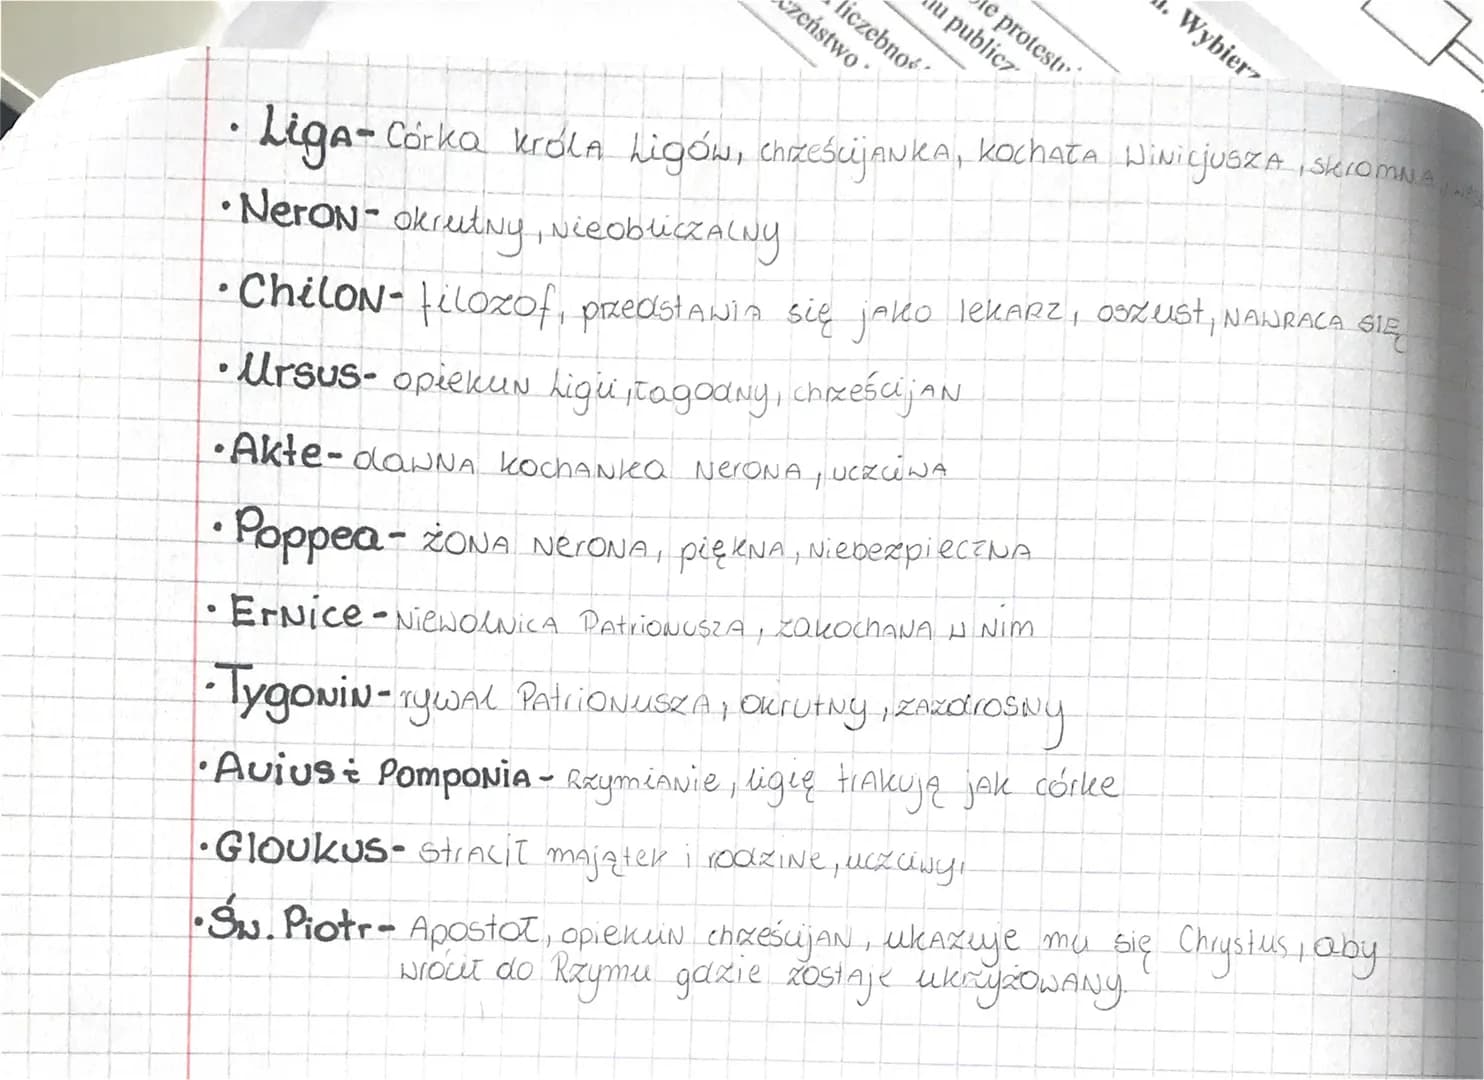 czeństwo.
liczebnoś
mu publicz
protest
. Wybierz
· Liga- Córka króla Ligów, chrześcijanka, kochała Winicjusza, skromna,
· Neron- okrutny, nieobliczalny
· Chilon- filozof, przedstawia się jako lekarz, oszust, nawraca się
· Ursus- opiekun Ligii, łagodny, chrześcijan
· Akte- dawna kochanka Nerona, uczciwa
· Poppea- żona Nerona, piękna, niebezpieczna
· Ernice - niewolnica Patrionusza, zakochana w nim
· Tygonin- rywal Patrionusza, okrutny, zazdrosny
· Avius i Pomponia - Rzymianie, ligię trakują jak córke
· Gloukus- stracił majątek i rodzine, uczciwy,
· Św. Piotr- Apostoł, opiekun chrześcijan, ukazuje mu się Chrystus, aby
wrócił do Rzymu gdzie zostaje ukrzyżowany.